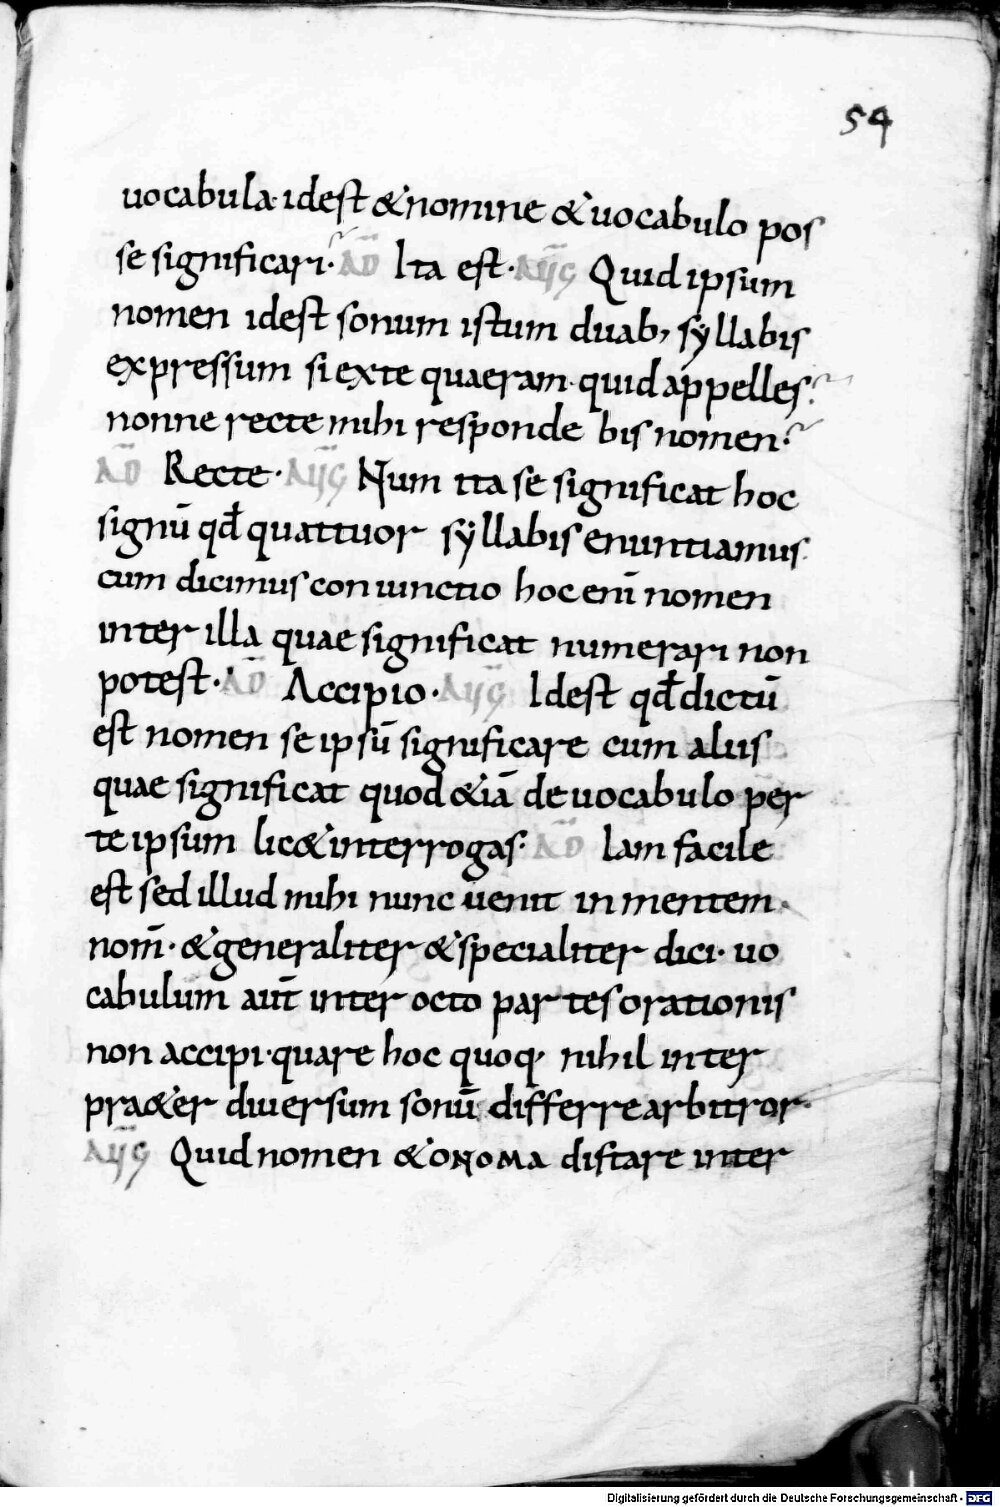 54
uocabula· idest & nomine & uocabulo pos
se significari·? AD̄ Ita est· AŪG Quid ipsum
nomen idest sonum istum duab; syllabis
expressum si exte quaeram· quid appelles?
nonne recte mihi responde bis nomen·?
AD̄ Recte· AŪG Num ita se significat hoc
signū qđ quattuor syllabis enuntiamus·
cum dicimus coniunctio hoc eni̅ nomen
inter illa quae significat numerari non
potest· AD̄ Accipio· AŪG Idest qđ dictū
est nomen se ipsū significare cum aliis
quae significat quod &iā de uocabulo per
te ipsum lic& interrogas· AD̄ Iam facile
est sed illud mihi nunc uenit in mentem·
nom̅· & generaliter & specialiter dici· uo
cabulum aut̅ inter octo partes orationis
non accipi· quare hoc quoq· nihil inter
pra&er diuersum sonū differre arbitror·
AŪG Quid nomen & onoma distare inter
Digitalisierung gefördert durch die Deutsche Forschungsgemeinschaft - DFG